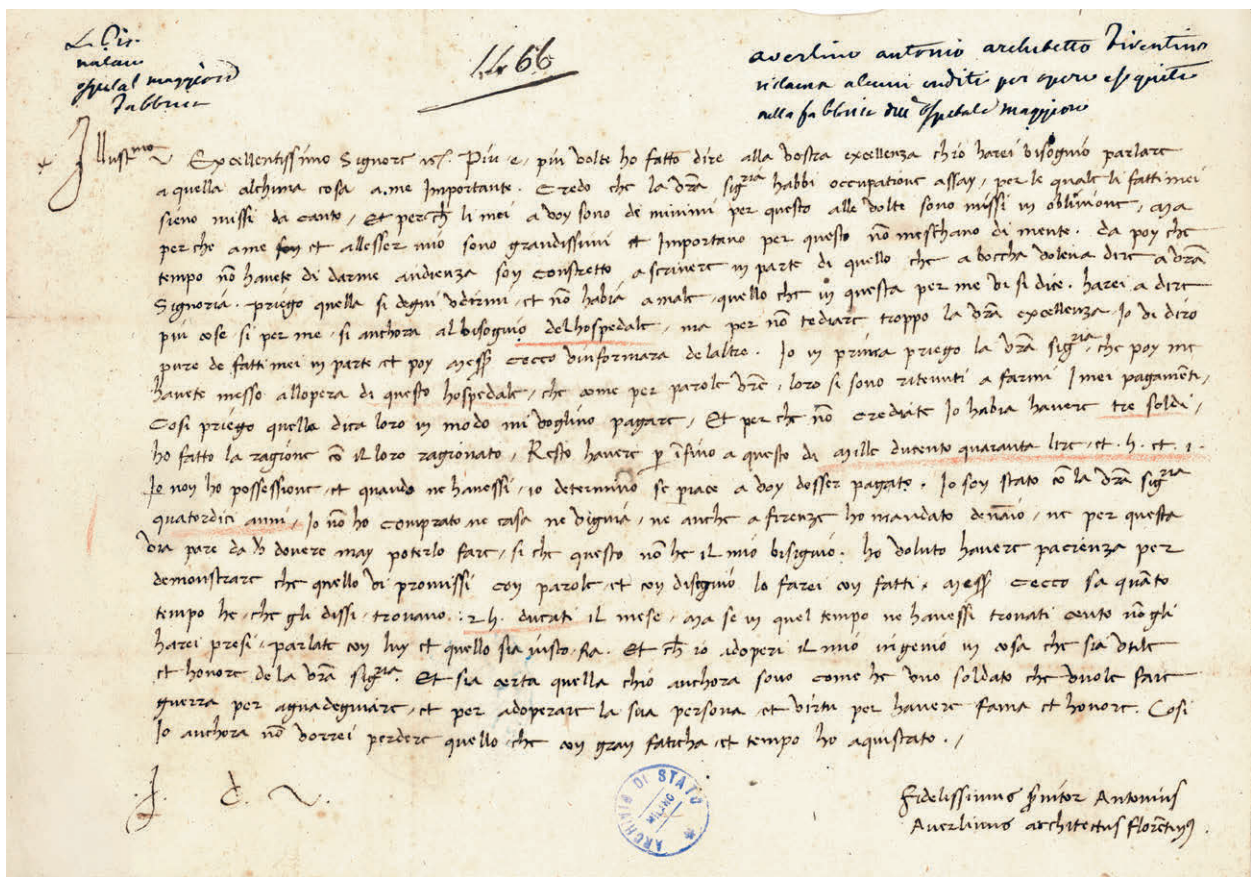 ospital maggiore
Fabbrica
1466
averlino antonio architetto fiorentino
reclama alcuni crediti per opere eseguite
nella fabbrica dell' ospitale maggiore
Illustmo Excellentissimo Signore Piu e piu volte ho fatto dire alla vostra excellenza chio harei bisogno parlare
a quella alchuna cosa a me Importante. Credo che la vra sigria habbi occupatione assay, per le quale li fatti mei
sieno missi da canto, Et perch li mei a voy sono de minimi per questo alle volte sono missi in oblivione, Ma
perche a me et allesser mio sono grandissimi et Importano per questo no meschano di mente. da poy che
tempo no havete di darme audienza son constretto a scrivere in parte di quello che a boccha voleva dire a vra
Signoria. priego quella si degni udirmi, et no habia a male quello che in questa per me vi si dice. harei a dire
piu cose si per me, si anchora al bisogno delhospedale, ma per no tediare troppo la vra excellenza Io vi diro
pure de fatti mei in parte et poy Mess Cecco vinformara delaltre. Io in prima priego la vra sigria, che poy me
havete messo allopera di questo hospedale, che come per parole vre, loro si sono ritenuti a farmi I mei pagamenti,
Cosi priego quella dica loro in modo mi voglino pagare, Et per che no crediate Io habia havere tre soldi,
ho fatto la ragione co il loro ragionato, Resto havere p ifino a questo di Mille ducento quaranta lire, et. h. et 1.
Io non ho possessione, et quando ne havessi, io determino se piace a voy dosser pagato. Io son stato co la vra sigria
quatordici anni, Io no ho comprato ne casa ne vigna, ne anche a firenze ho mandato denaio, ne per questa
via pare da dovere may poterlo fare, si che questo no he il mio bisogno. ho voluto havere pacienza per
demonstrare che quello vi promissi con parole, et con disegno lo farei con fatti. Mess Cecco sa quato
tempo he, che gli dissi, trovavo. 2h. ducati il mese, Ma se in quel tempo ne havessi trovati cento no gli
harei presi, parlate con luy et quello sia iusto fia. Et ch io adoperi il mio ingenio in cosa che sia utile
et honore de la vra sigria. Et sia certa quella chio anchora sono come he uno soldato che vuole fare
guerra per aguadegnare, et per adoperare la sua persona et virtu per havere fama et honore. Cosi
Io anchora no vorrei perdere quello che con gran faticha et tempo ho aquistrato.,
ARCHIVIO DI STATO
MILANO
Fidelissimus svitor Antonius
Averlinus architectus florentinus